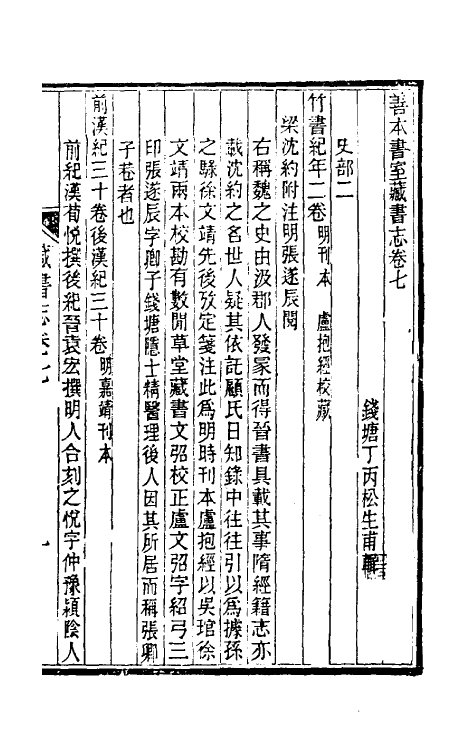 善本書室藏書志卷七
錢塘丁丙松生甫輯
史部二
竹書紀年二卷 明刊本 盧抱經校藏
梁沈約附注明張遂辰閱
右稱魏之史由汲郡人發冢而得晉書具載其事隋經籍志亦
載沈約之名世人疑其依託顧氏日知錄中往往引以爲據孫
之騄徐文靖先後攷定箋注此爲明時刊本盧抱經以吳琯徐
文靖兩本校勘有數閒草堂藏書文弨校正盧文弨字紹弓三
印張遂辰字卿子錢塘隱士精醫理後人因其所居而稱張卿
子巷者也
前漢紀三十卷後漢紀三十卷 明嘉靖刊本
前紀漢荀悅撰後紀晉袁宏撰明人合刻之悅字仲豫潁陰人
藏書志卷七
一